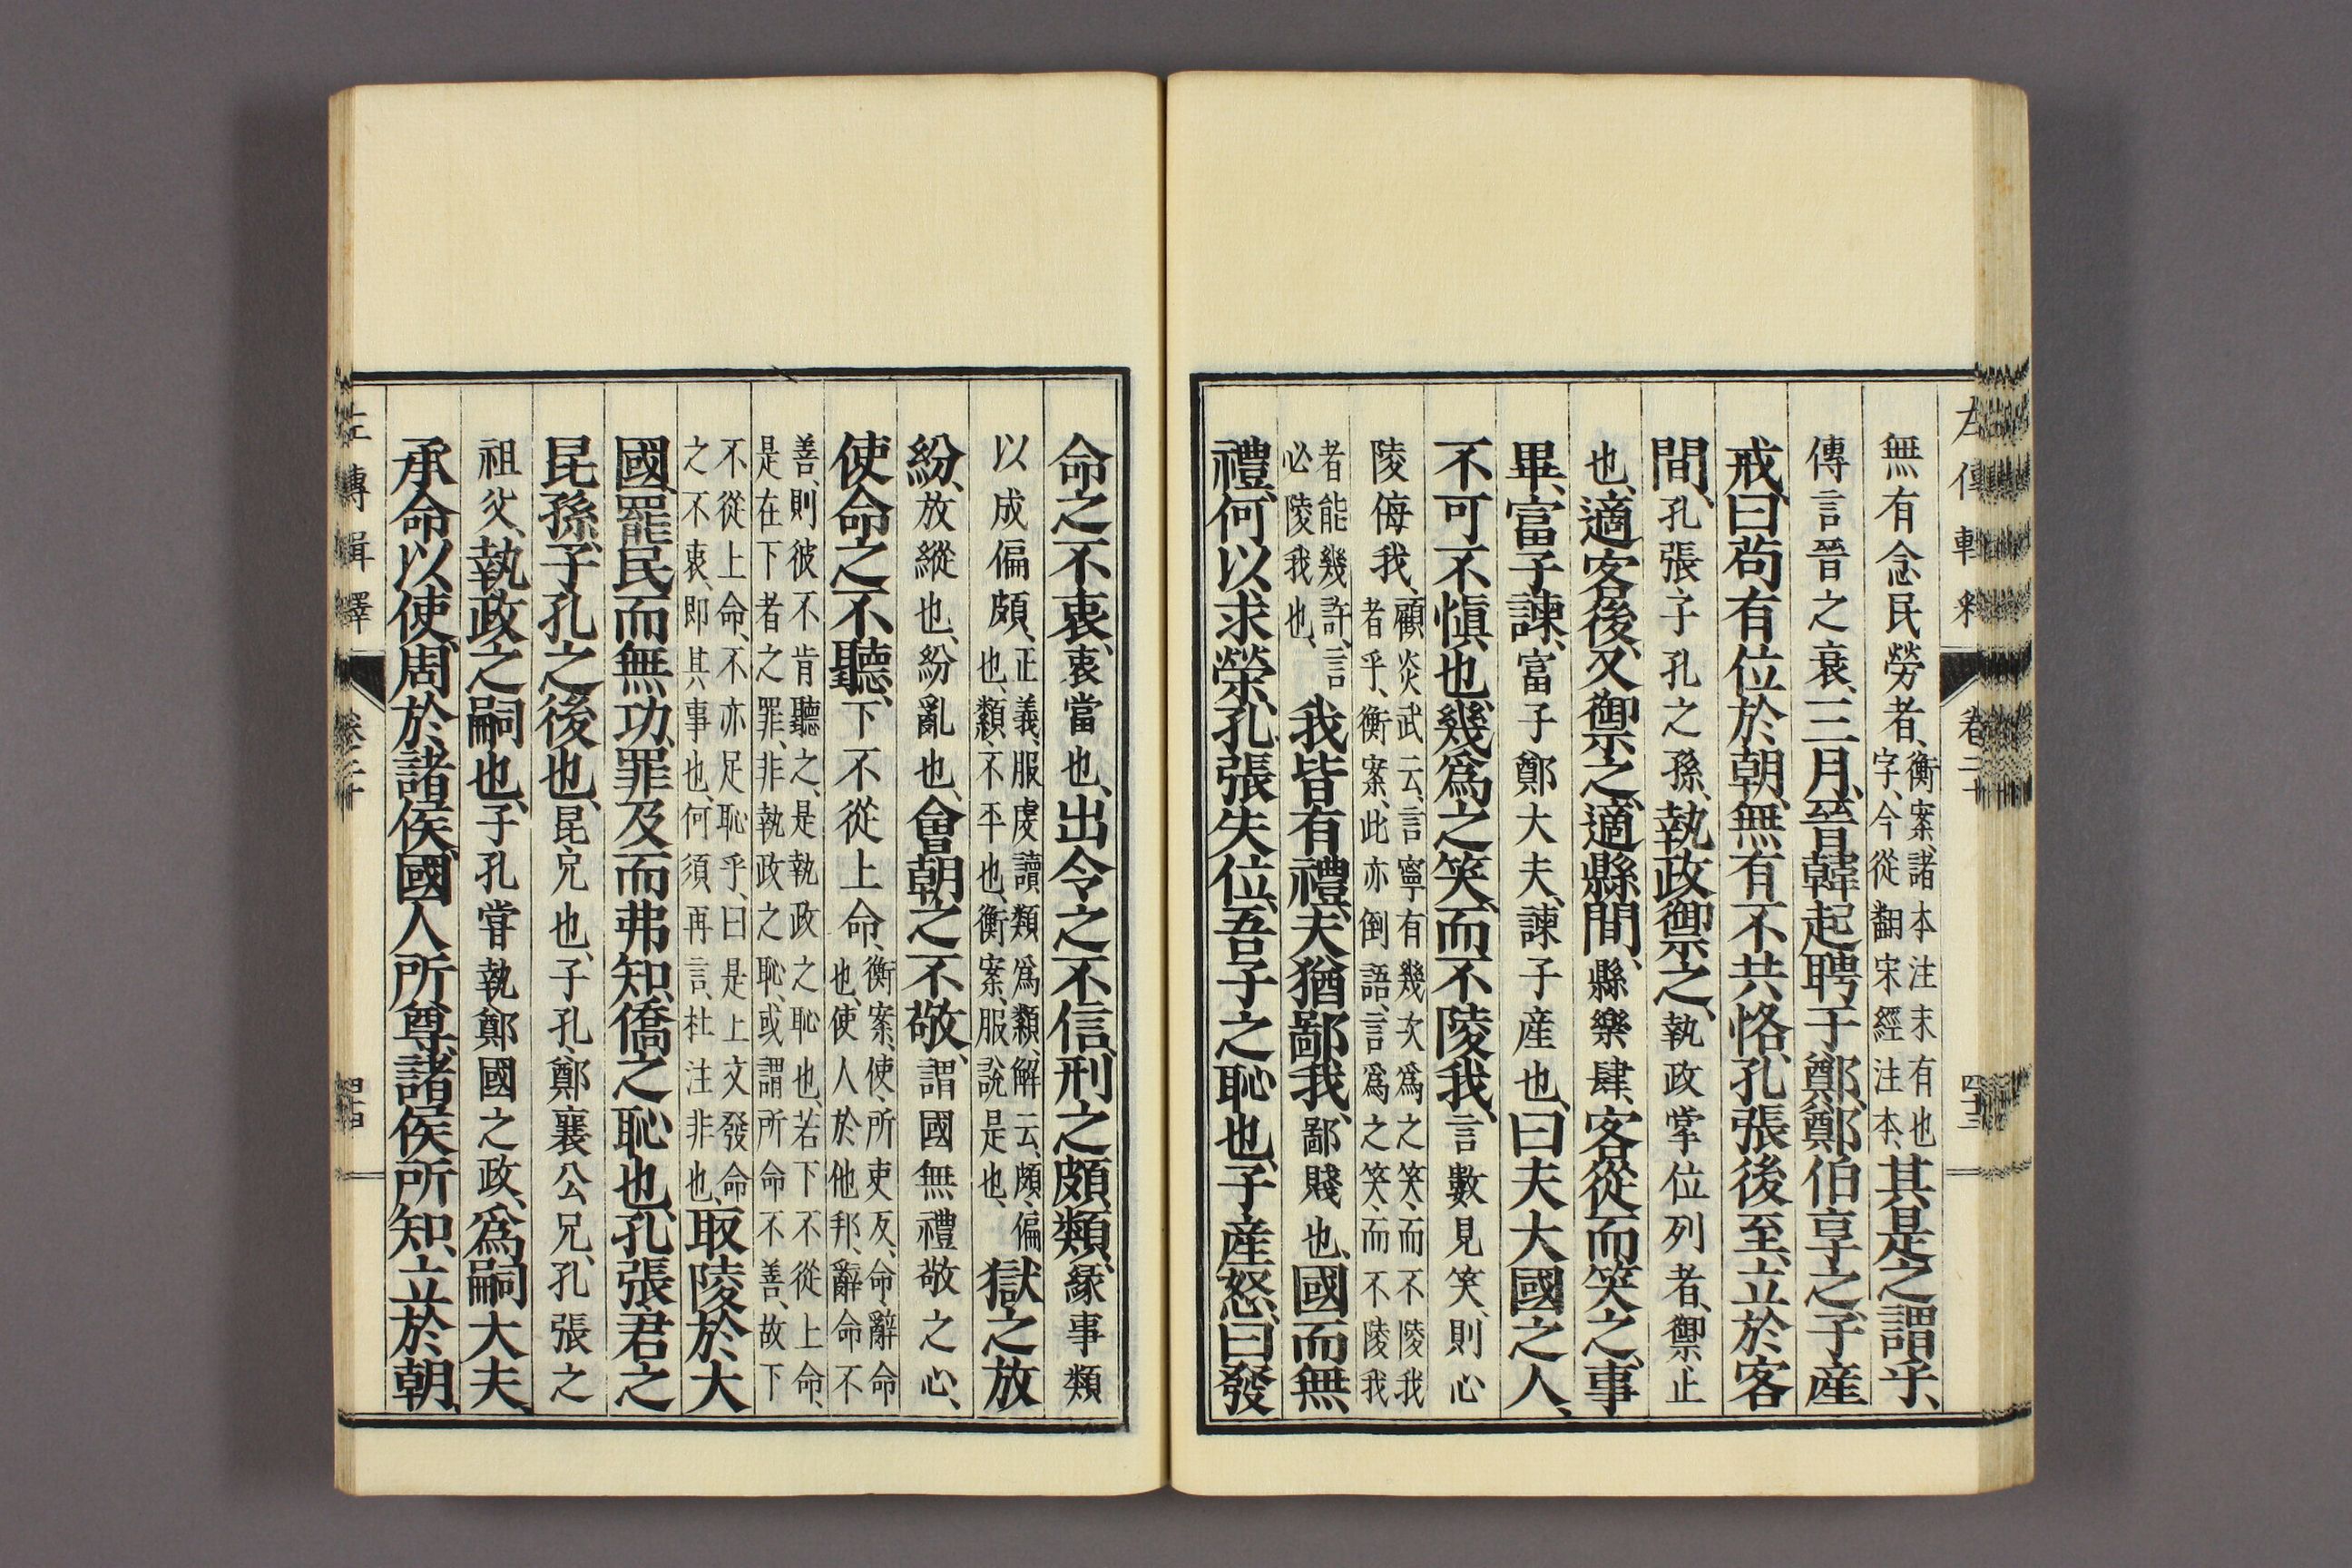 無有念民勞者、衡案、諸本注末有也字、今從翻宋經注本、其是之謂乎、
傳言晉之衰、三月、晉韓起聘于鄭、鄭伯享之、子產
戒曰、苟有位於朝、無有不共恪、孔張後至、立於客
間、孔張子孔之孫、執政禦之、執政掌位列者、禦止
也、適客後、又禦之、適縣間、縣樂肆、客從而笑之、事
畢、富子諫、富子鄭大夫、諫子產也、曰、夫大國之人、
不可不愼也、幾爲之笑、而不陵我、言數見笑、則心
陵侮我、顧炎武云、言寧有幾次爲之笑、而不陵我者乎、衡案、此亦倒語、言爲之笑、而不陵我
者能幾許、言必陵我也、我皆有禮、夫猶鄙我、鄙賤也、國而無
禮、何以求榮、孔張失位、吾子之恥也、子產怒曰、發
左傳輯釋
卷二十
四十三
命之不衷、衷當也、出令之不信、刑之頗類、緣事類
以成偏頗、正義、服虔讀類爲纇、解云、頗、偏也、纇、不平也、衡案、服說是也、獄之放
紛、放縱也、紛亂也、會朝之不敬、謂國無禮敬之心、
使命之不聽、下不從上命、衡案、使、所吏反、命、辭命也、使人於他邦、辭命不
善、則彼不肯聽之、是執政之恥也、若下不從上命、是在下者之罪、非執政之恥、或謂所命不善、故下
不從上命、不亦足恥乎、曰是上文發命之不衷、即其事也、何須再言、杜注非也、取陵於大
國、罷民而無功、罪及而弗知、僑之恥也、孔張、君之
昆孫、子孔之後也、昆兄也、子孔、鄭襄公兄、孔張之
祖父、執政之嗣也、子孔嘗執鄭國之政、爲嗣大夫、
承命以使、周於諸侯、國人所尊、諸侯所知、立於朝、
左傳輯釋
卷二十
四十四